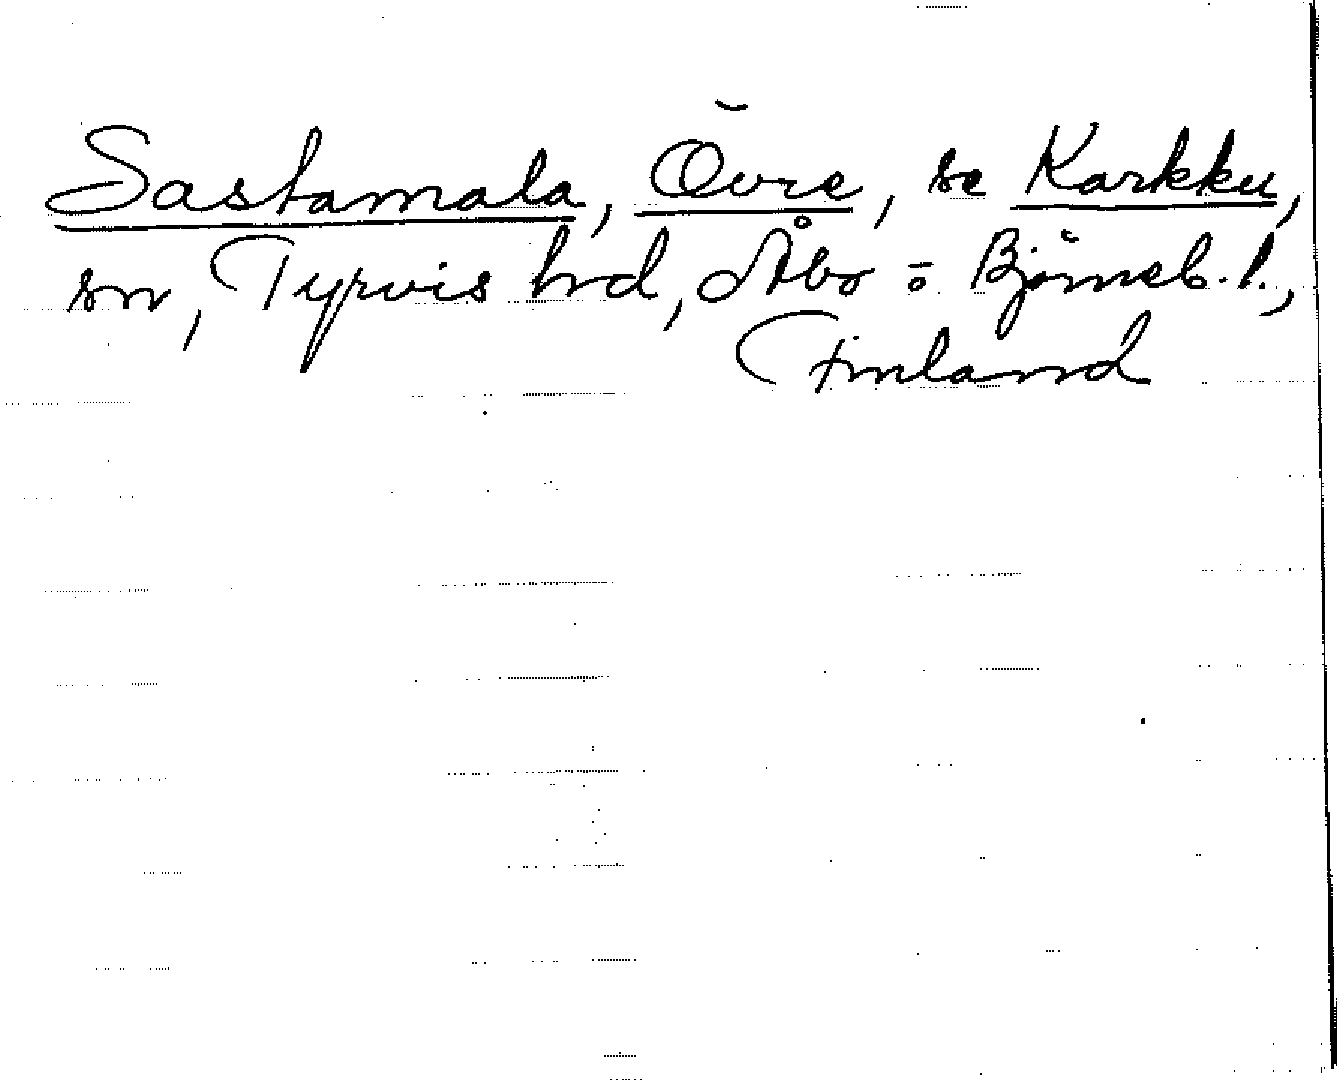 Sastamala, Övre, se Karkku,
sn, Tyrvis hrd, Åbo o Björneb. l.,
Finland